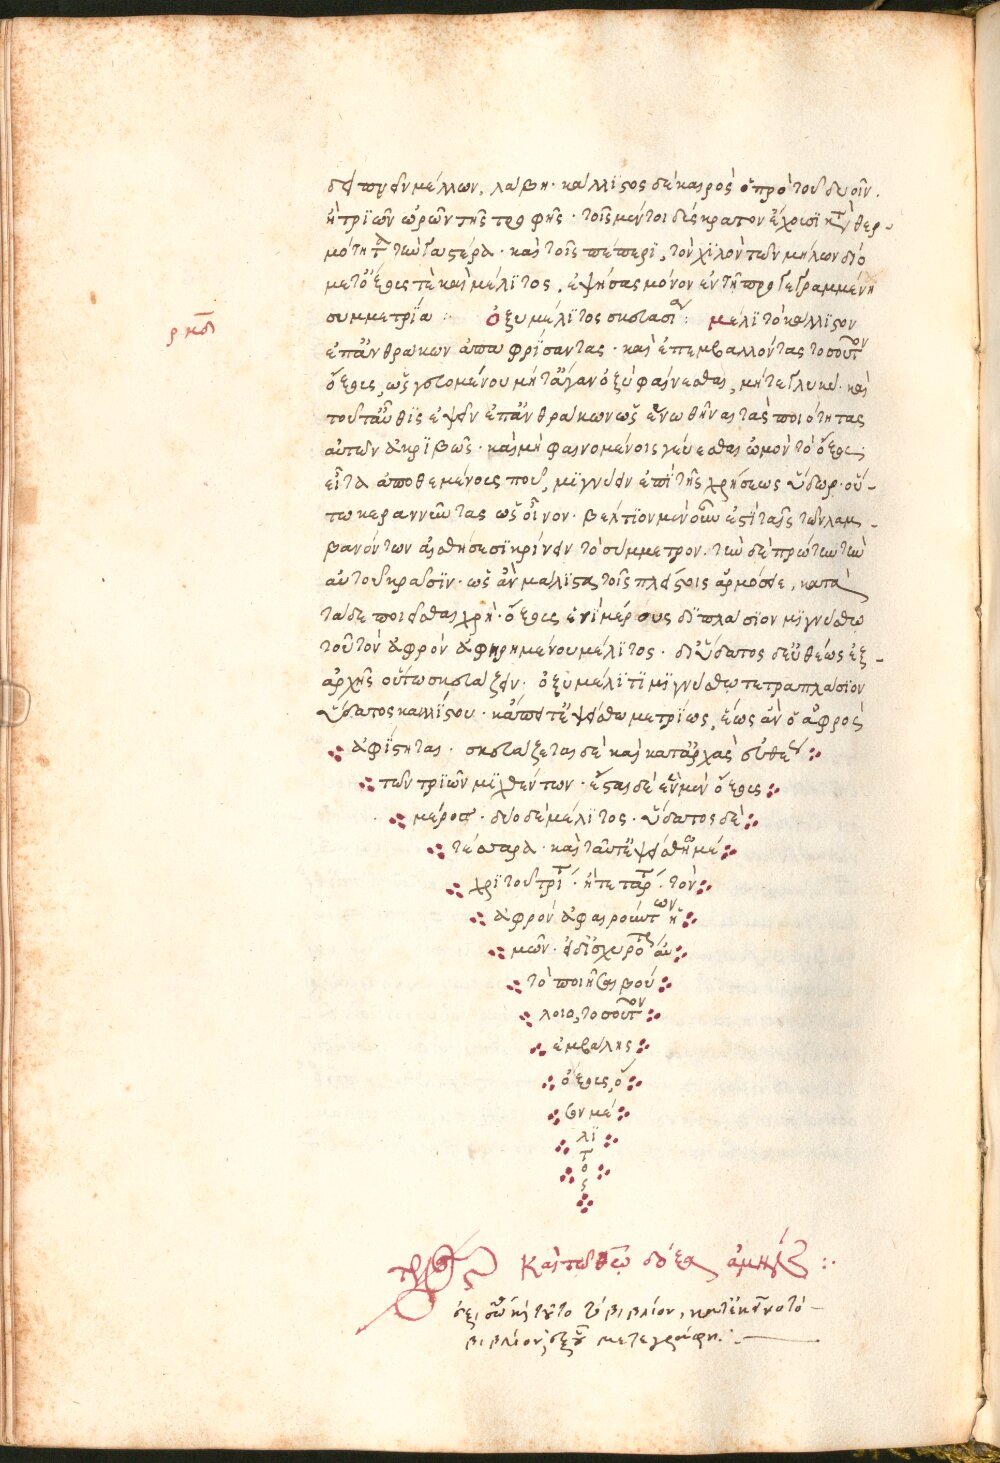 δειπνεῖν μέλλων, λάβῃ· κάλλιστος δὲ καιρὸς ὁ πρὸ τοῦ δυοῖν,
ἢ τριῶν ὡρῶν τῆς τροφῆς· τοῖς μέντοι δύσκρατον ἔχουσι κατὰ θερ-
μότητα τὴν γαστέρα· καὶ τοῖς πέπερι, τὸν χυλὸν τῶν μήλων διὸ
μετ' ὄξους τὲ καὶ μέλιτος, ἑψήσας μόνον ἐν τῇ προγεγραμμένῃ
συμμετρία : ὀξυμέλιτος σκευασία : μέλι τὸ κάλλιστον
ρκδ
ἐπ' ἀνθράκων ἀπαφρίσαντας· καὶ ἐπεμβαλλόντας τοσοῦτον
ὄξους, ὡς γευομένου μήτ' ἄγαν ὀξὺ φαίνεσθαι, μήτε γλυκύ· καὶ
τοῦτ' αὖθις ἕψειν ἐπ' ἀνθράκων ὡς ἑνωθῆναι τὰς ποιότητας
αὐτῶν ἀκριβῶς· καὶ μὴ φαινομένοις γεύεσθαι ὠμὸν τὸ ὄξος
εἶτα ἀποθεμένους που, μιγνύειν ἐπὶ τῆς χρήσεως ὕδωρ· οὕ-
τω κεραννῶντας ὡς οἶνον· βέλτιον μὲν οὖν ἐστὶ ταῖς τῶν λαμ-
βανόντων αἰσθήσεσι κρίνειν τὸ σύμμετρον. τὴν δὲ πρώτην τὴν
αὐτοῦ κρᾶσιν· ὡς ἂν μάλιστα τοῖς πλείστοις ἁρμόσῃ, κατὰ
τάδε ποιεῖσθαι χρὴ· ὄξους ἑνὶ μέρους διπλάσιον μιγνύσθω
τοῦ τὸν ἀφρὸν ἀφῃρημένου μέλιτος. δι' ὕδατος δ' εὐθέως ἐξ-
ἀρχῆς οὕτω σκευάζειν· ὀξυμέλιτι μιγνύσθω τετραπλάσιον
ὕδατος καλλίστου· κἄπειτ' ἑψείσθω μετρίως, ἕως ἂν ὁ ἀφρὸς
ἀφίστηται· σκευάζεται δὲ καὶ κατ' ἀρχὰς εὐθὺς
τῶν τριῶν μιχθέντων· ἔσται δὲ ἓν μὲν ὄξους
μέρος· δύο δὲ μέλιτος· ὕδατος δὲ
τέσσαρα· καὶ ταῦτ' ἑψείσθω μέ
χρι τοῦ τρίτου· ἢ τετάρτου· τὸν
ἀφρὸν ἀφαιρούντων ἡ
μῶν· εἰ δ' ἰσχυρότερον αὐ
τὸ ποιῆσαι βού
λοιο, τοσοῦτον
ἐμβάλης
ὄξους, ὅ
σον μέ
λι
τ
ο
ς
τέλος καὶ τῷ θεῷ δόξα ἀμήν :·
βιβλίον μετεγράφη.